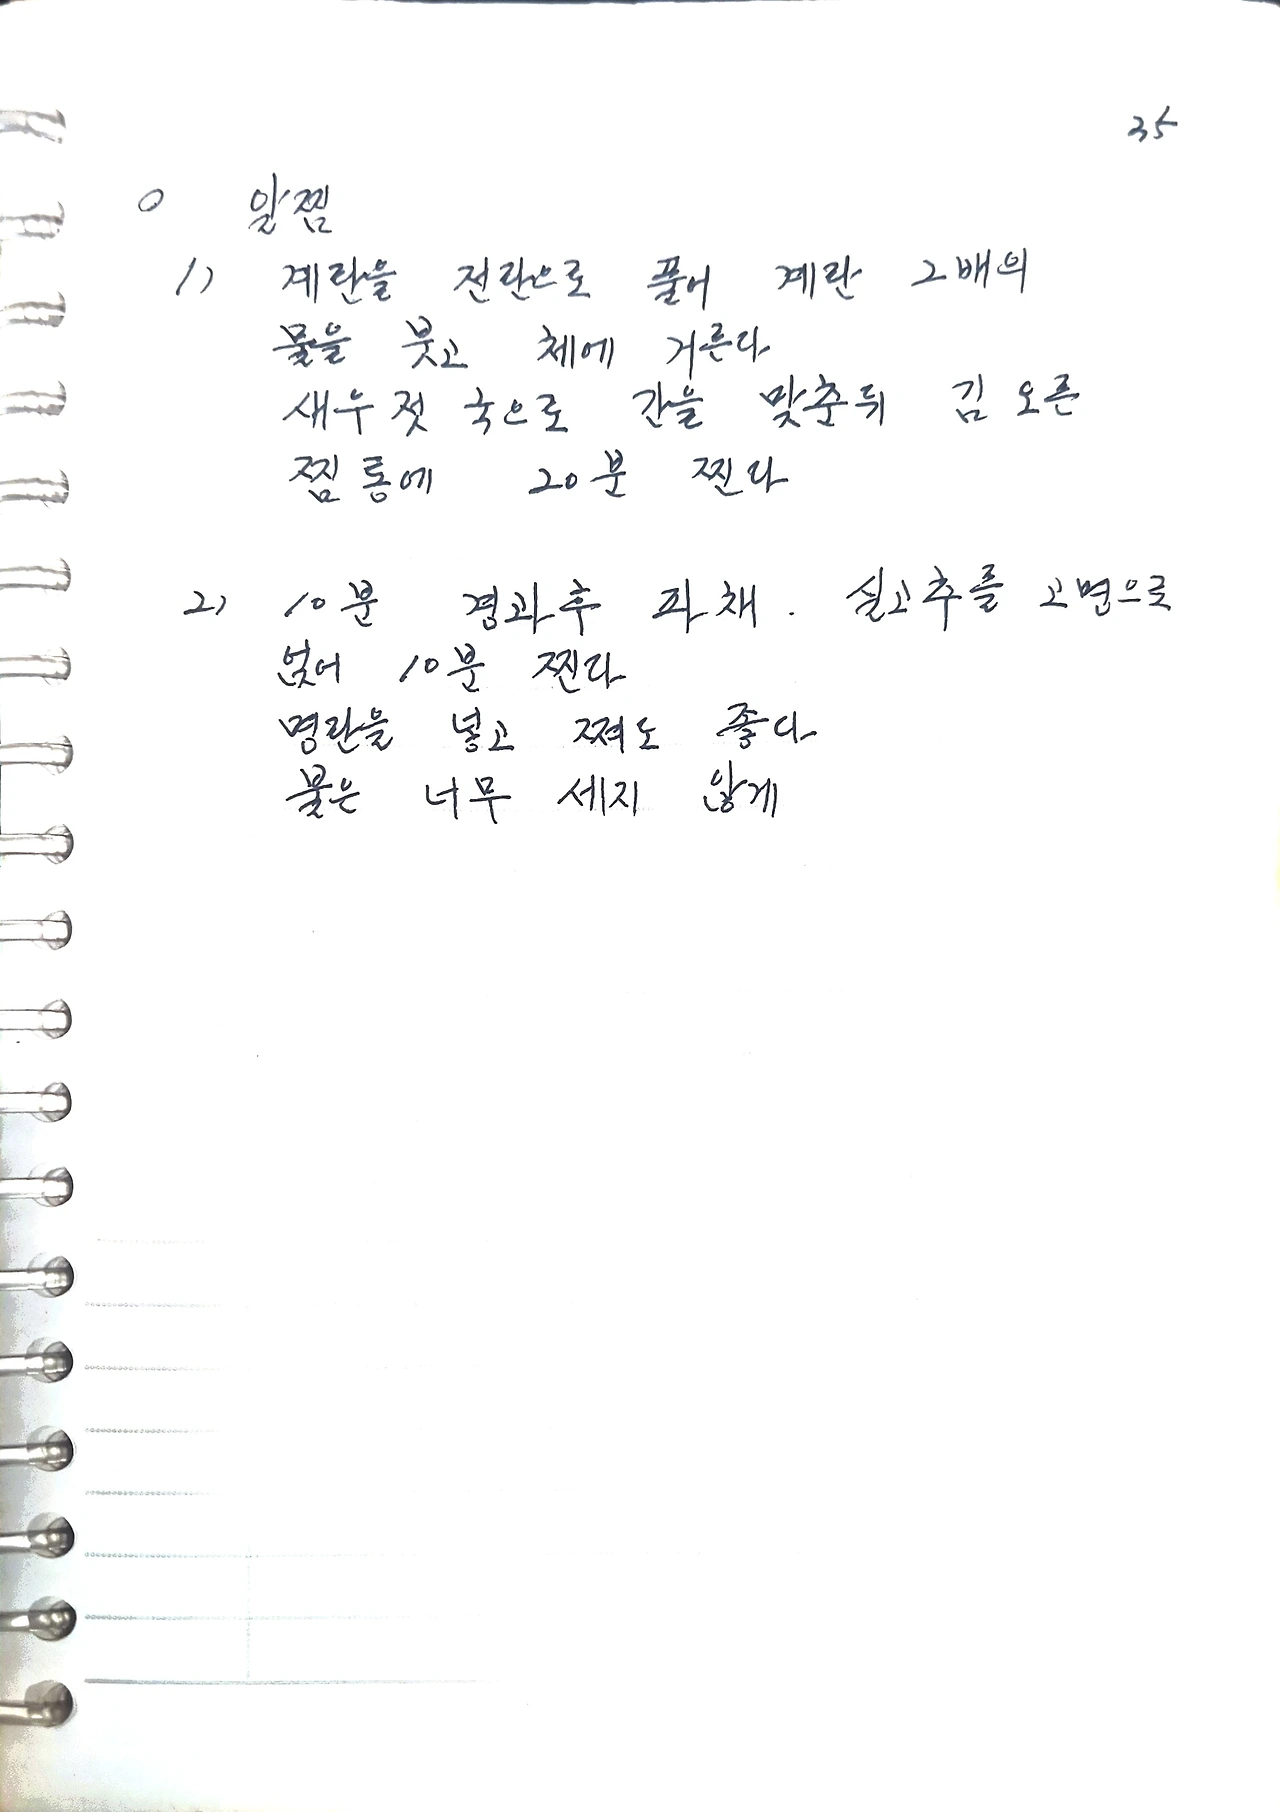 35
○ 알찜
1) 계란을 전란으로 풀어 계란 2배의
물을 붓고 체에 거른다
새우젓 국으로 간을 맞춘뒤 김 오른
찜통에 20분 찐다
2) 10분 경과후 파채. 실고추를 고명으로
얹어 10분 찐다
명란을 넣고 쪄도 좋다
불은 너무 세지 않게